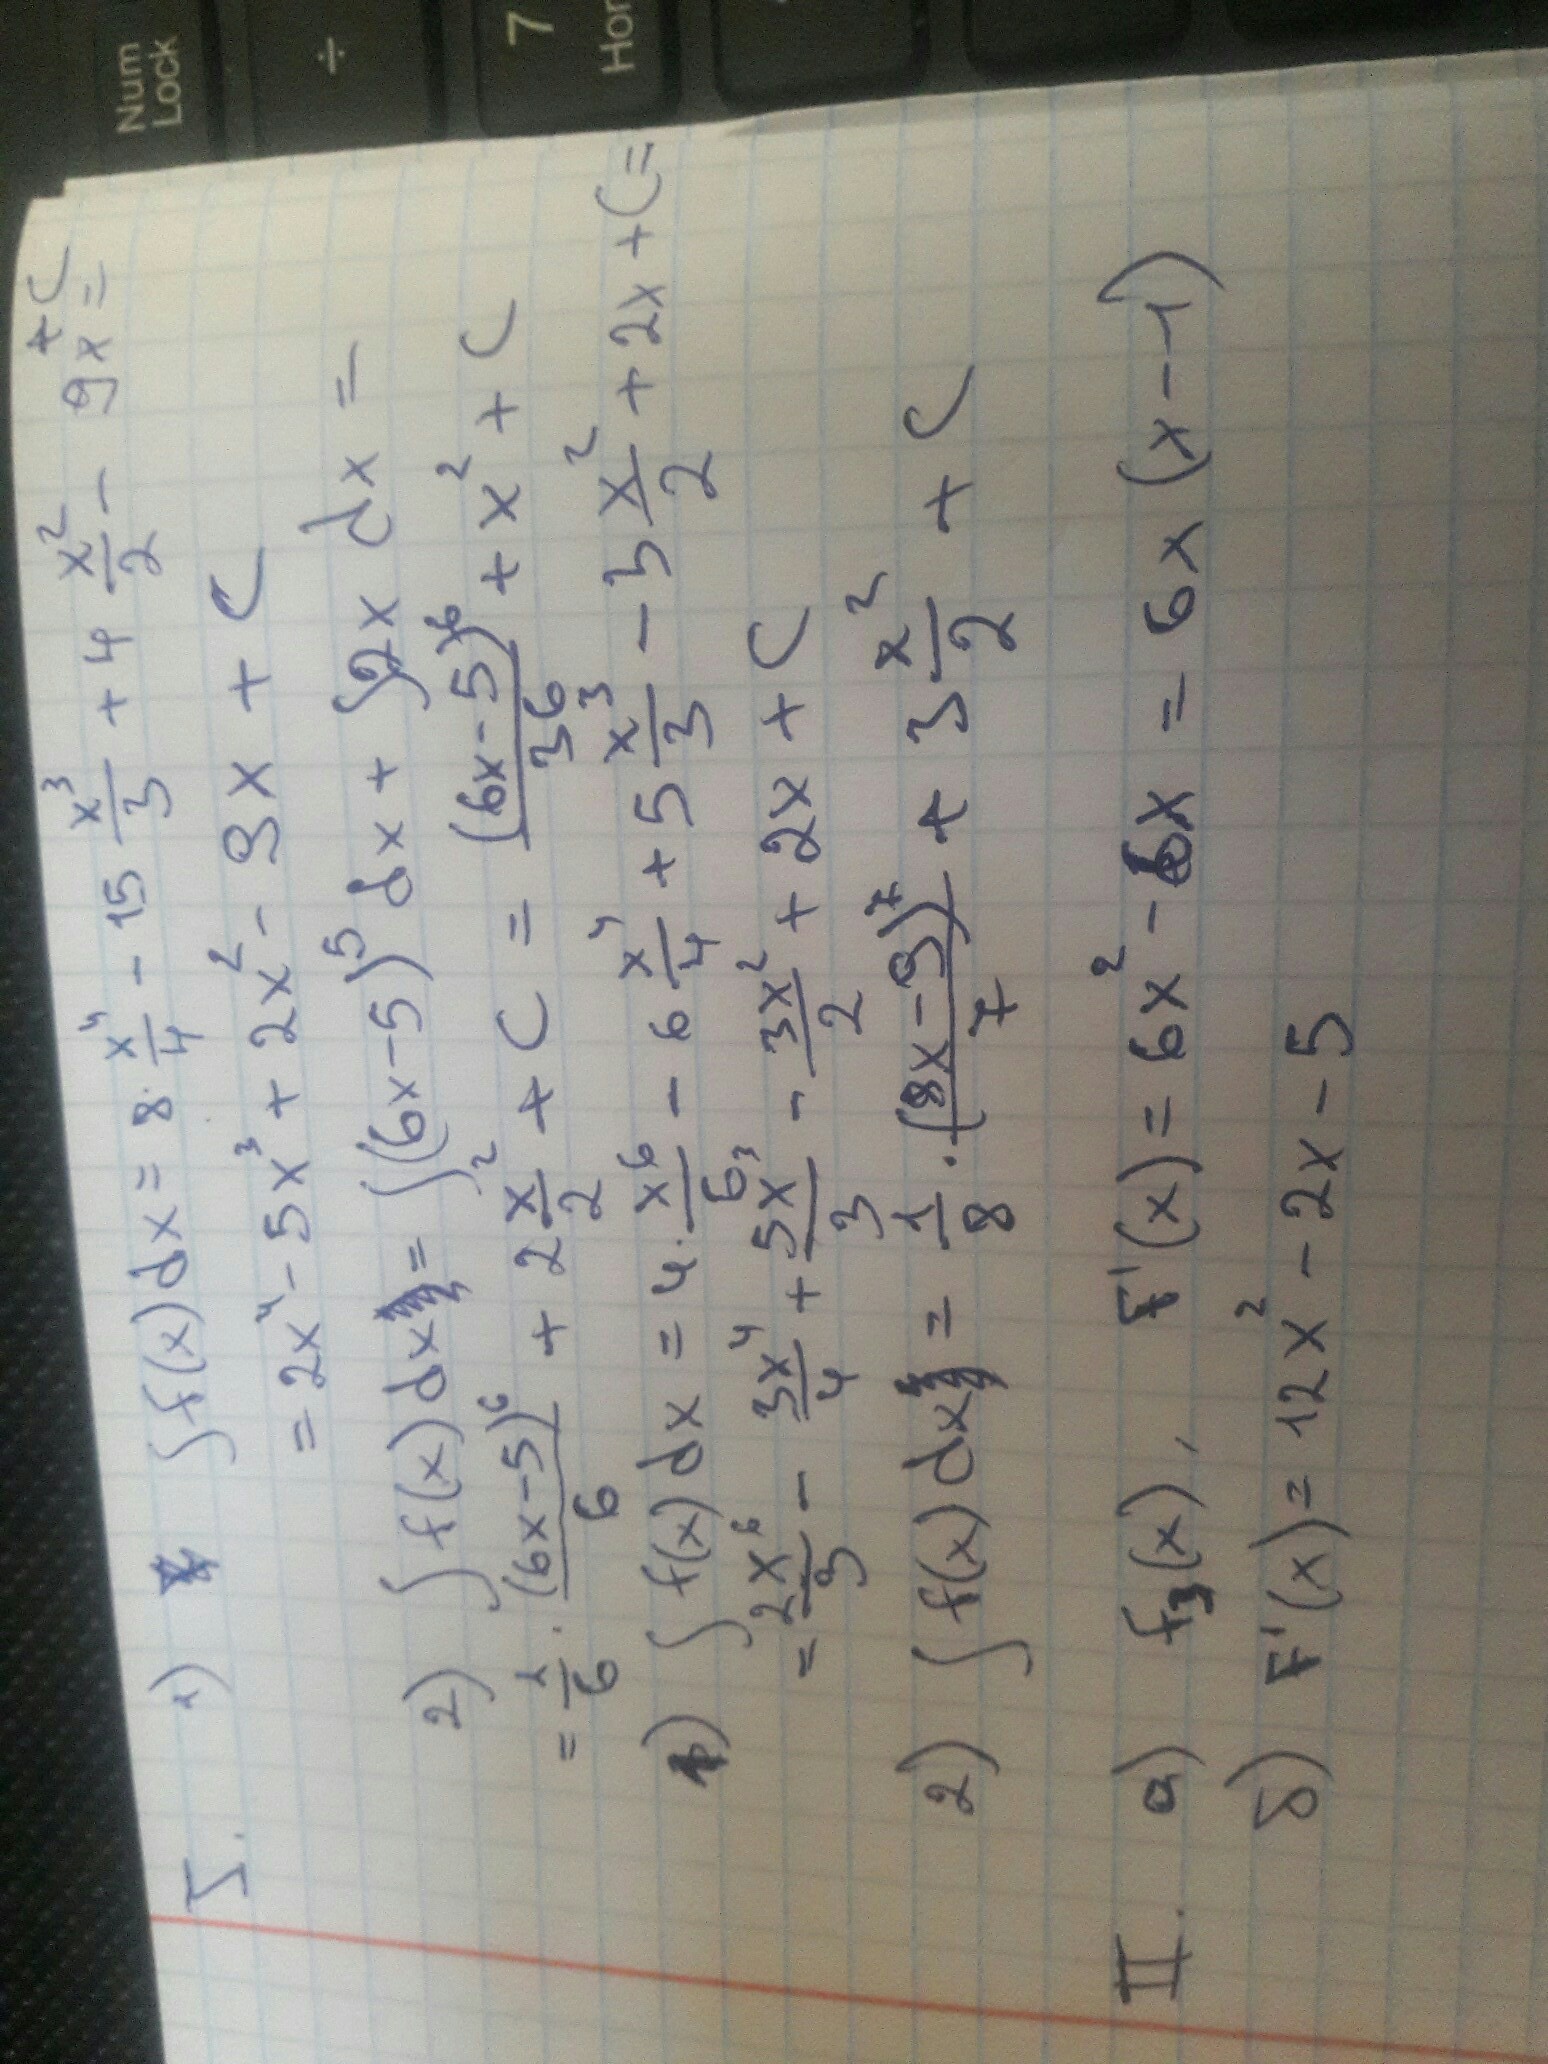 +C
I. 1) ∫f(x)dx = 8·x⁴/4 - 15 x³/3 + 4 x²/2 - 9x =
= 2x⁴ - 5x³ + 2x² - 9x + C
2) ∫f(x)dx = ∫(6x-5)⁵ dx + ∫2x dx =
= 1/6 · (6x-5)⁶/6 + 2 x²/2 + C = (6x-5)⁶/36 + x² + C
1) ∫f(x)dx = 4·x⁶/6 - 6 x⁴/4 + 5 x³/3 - 3 x²/2 + 2x + C =
= 2x⁶/3 - 3x⁴/4 + 5x³/3 - 3x²/2 + 2x + C
2) ∫f(x)dx = 1/8 · (8x-9)⁷/7 + 3 x²/2 + C
II. a) f₃(x), F'(x) = 6x² - 6x = 6x(x-1)
δ) F'(x) = 12x² - 2x - 5
Num
Lock
÷
7
Hor